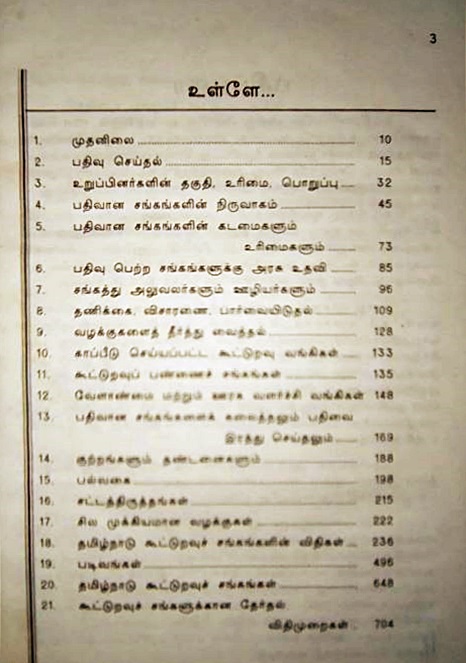 3
உள்ளே...
1. முதனிலை 10
2. பதிவு செய்தல் 15
3. உறுப்பினர்களின் தகுதி, உரிமை, பொறுப்பு 32
4. பதிவான சங்கங்களின் நிருவாகம் 45
5. பதிவான சங்கங்களின் கடமைகளும்
உரிமைகளும் 73
6. பதிவு பெற்ற சங்கங்களுக்கு அரசு உதவி 85
7. சங்கத்து அலுவலர்களும் ஊழியர்களும் 96
8. தணிக்கை, விசாரணை, பார்வையிடுதல் 109
9. வழக்குகளைத் தீர்த்து வைத்தல் 128
10. காப்பீடு செய்யப்பட்ட கூட்டுறவு வங்கிகள் 133
11. கூட்டுறவுப் பண்ணைச் சங்கங்கள் 135
12. வேளாண்மை மற்றும் ஊரக வளர்ச்சி வங்கிகள் 148
13. பதிவான சங்கங்களைக் கலைத்தலும் பதிவை
இரத்து செய்தலும் 169
14. குற்றங்களும் தண்டனைகளும் 188
15. பல்வகை 198
16. சட்டத்திருத்தங்கள் 215
17. சில முக்கியமான வழக்குகள் 222
18. தமிழ்நாடு கூட்டுறவுச் சங்கங்களின் விதிகள் 236
19. படிவங்கள் 496
20. தமிழ்நாடு கூட்டுறவுச் சங்கங்கள் 648
21. கூட்டுறவுச் சங்களுக்கான தேர்தல்
விதிமுறைகள் 704